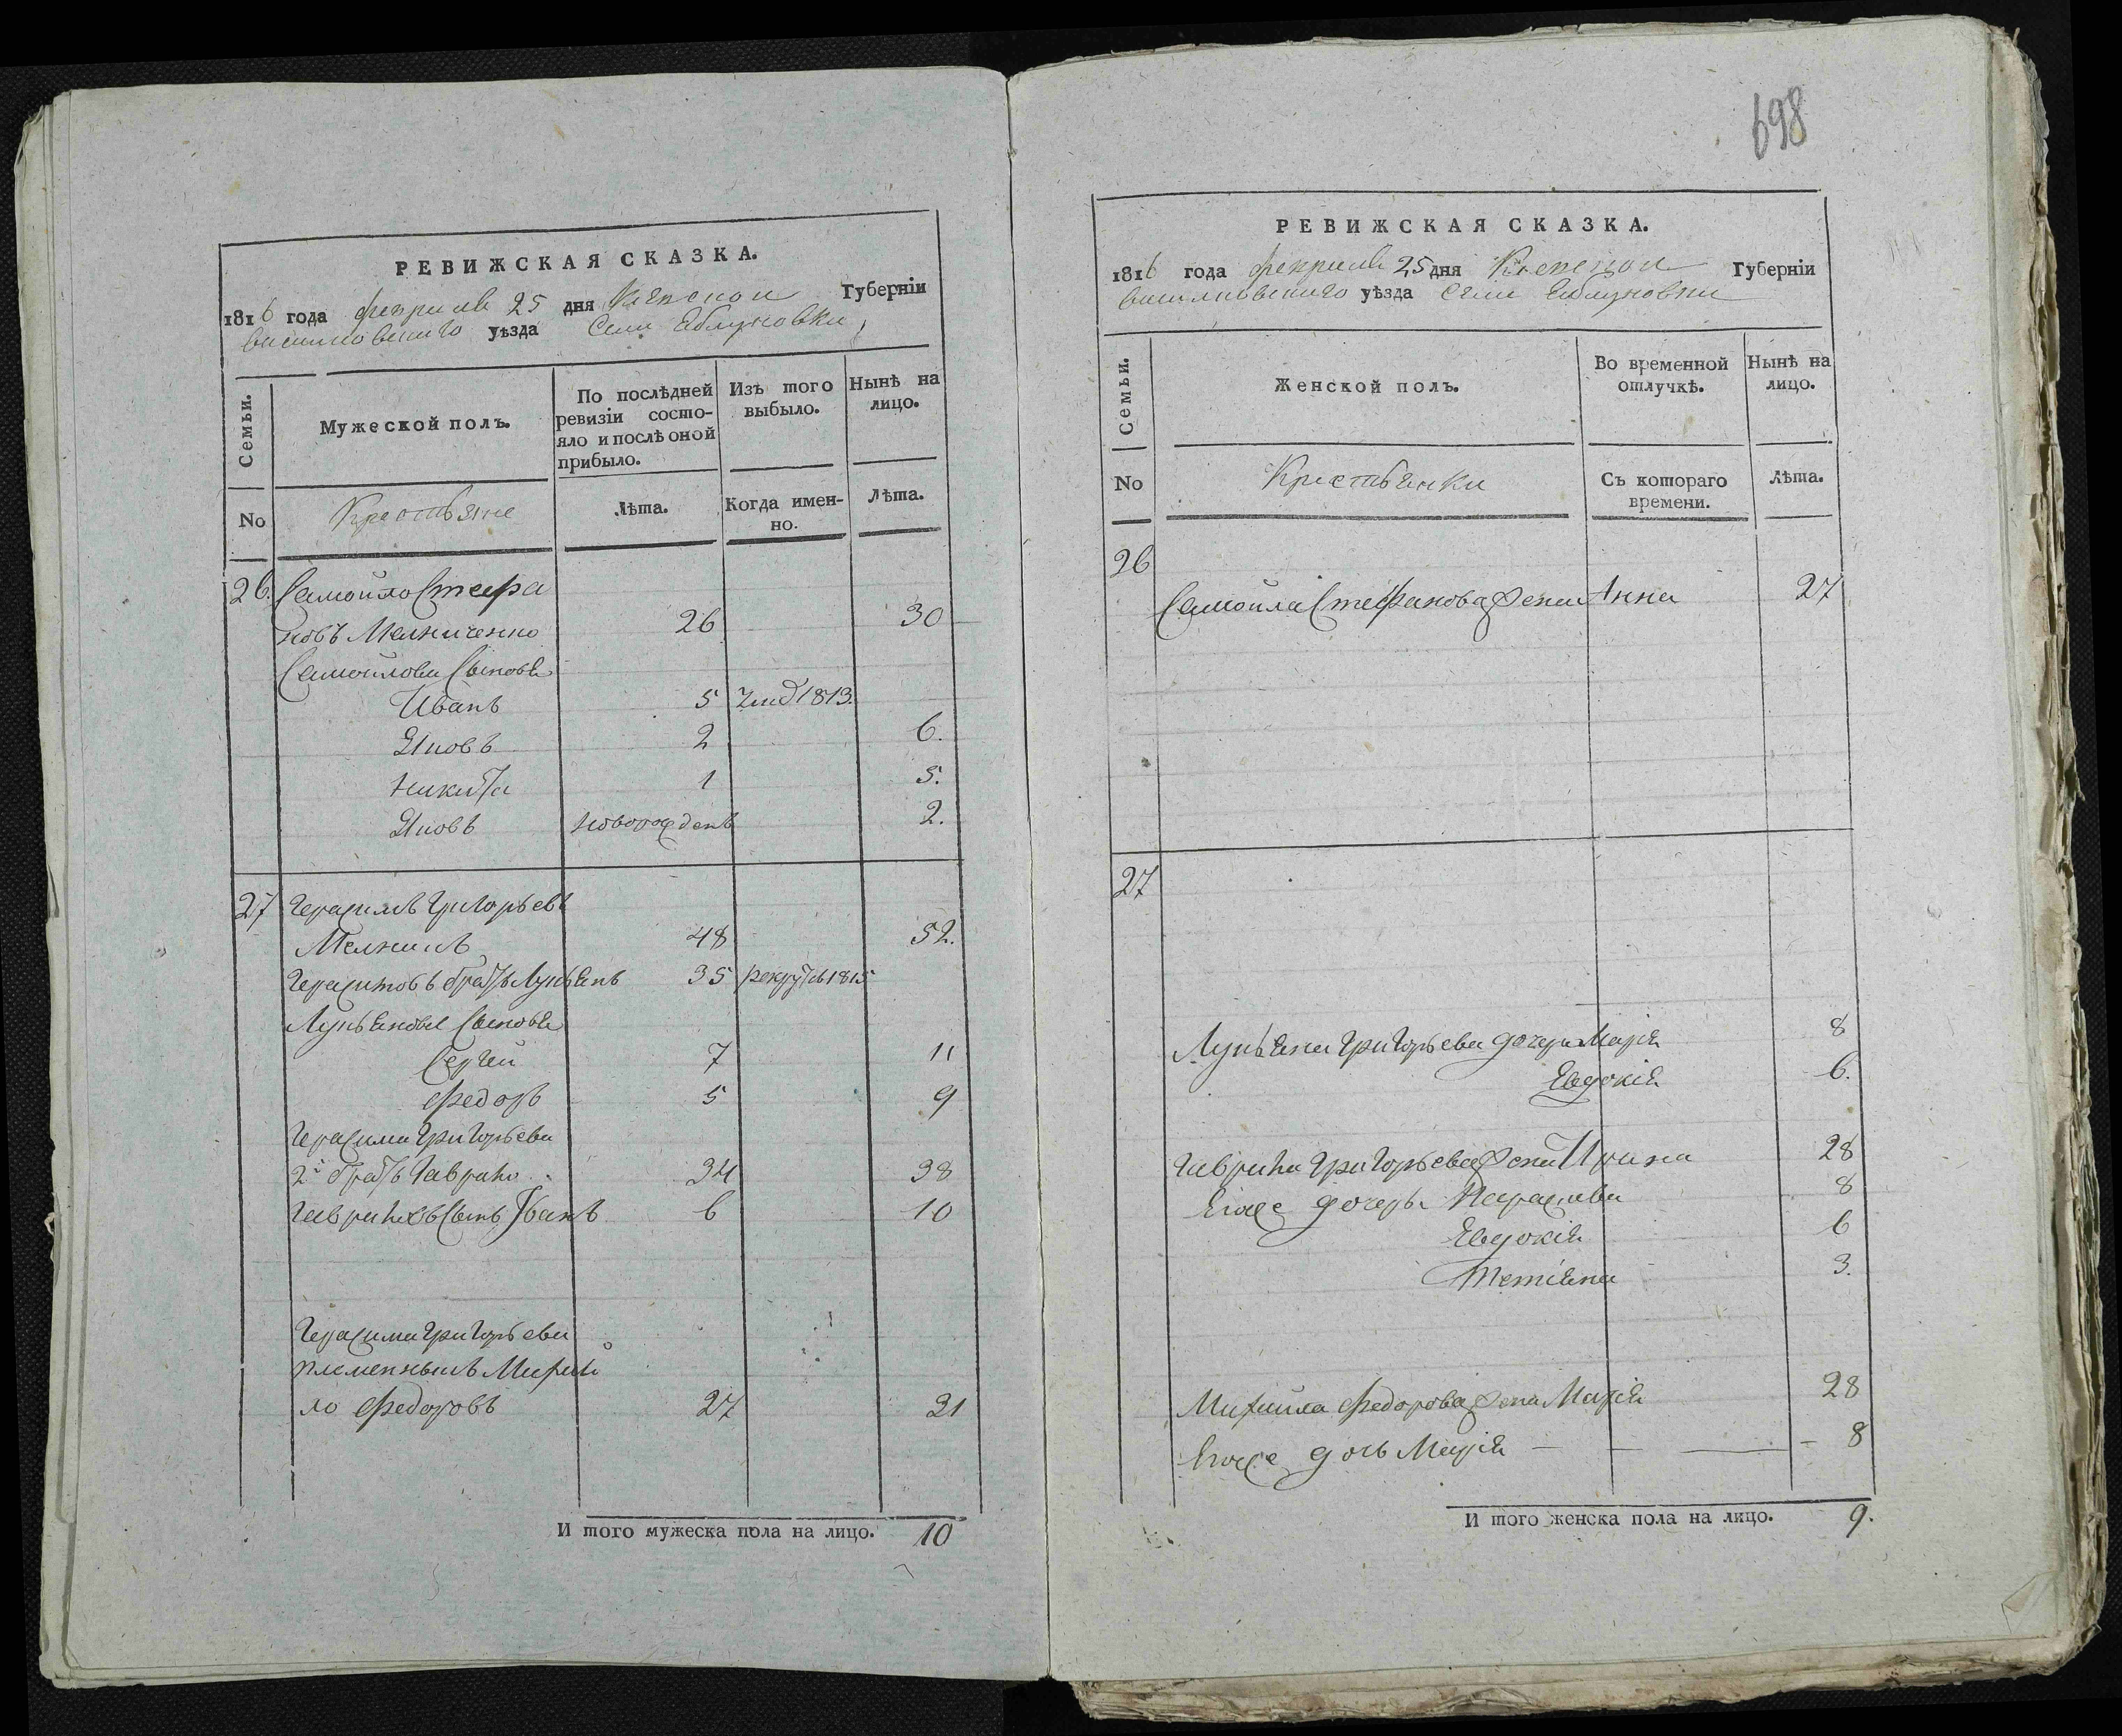 698
РЕВИЖСКАЯ СКАЗКА.
1816 года февраля 25 дня Киевской Губерніи
васильковского уѣзда Села Яблуновки
Семьи.
Мужеской полъ.
По послѣдней ревизіи состо-
яло и послѣ оной прибыло.
Изъ того выбыло.
Нынѣ на лицо.
No
Крестьяне
Лѣта.
Когда имен-
но.
Лѣта.
26. Самойло Стефа
новъ Мелниченко 26 30
Самойлови Сыновя
Иванъ 5 1813.
Яковъ 2 6.
Никита 1 5.
Яковъ новорожденъ 2.
27 Герасимъ Григорьевъ
Мелникъ 48 52.
Герасимовъ братъ Лукьянъ 35 рекрутъ 1815
Лукьяновы Сыновя
Сергей 7 11
Федоръ 5 9
Герасима Григорьева
2й братъ Гаврило 34 38
Сынъ Иванъ 6 10
Герасима Григорьева
племенникъ Михай
ло Федоровъ 27 31
И того мужеска пола на лицо. 10
РЕВИЖСКАЯ СКАЗКА.
1816 года февраля 25 дня Киевской Губерніи
васильковского уѣзда Села Яблуновки
Семьи.
Женской полъ.
Во временной отлучкѣ.
Нынѣ на лицо.
No
Крестьянки
Съ котораго времени.
Лѣта.
26
Самойла Стефанова жена Анна 27
27
Лукьяна Григорьева дочери Марія 8
Евдокія 6.
Гаврила Григорьева жена Ирина 28
Егоже дочеры Параскева 8
Евдокія 6
Тетіяна 3.
Михайла Федорова жена Марія 28
Егоже дочь Марія 8
И того женска пола на лицо. 9.